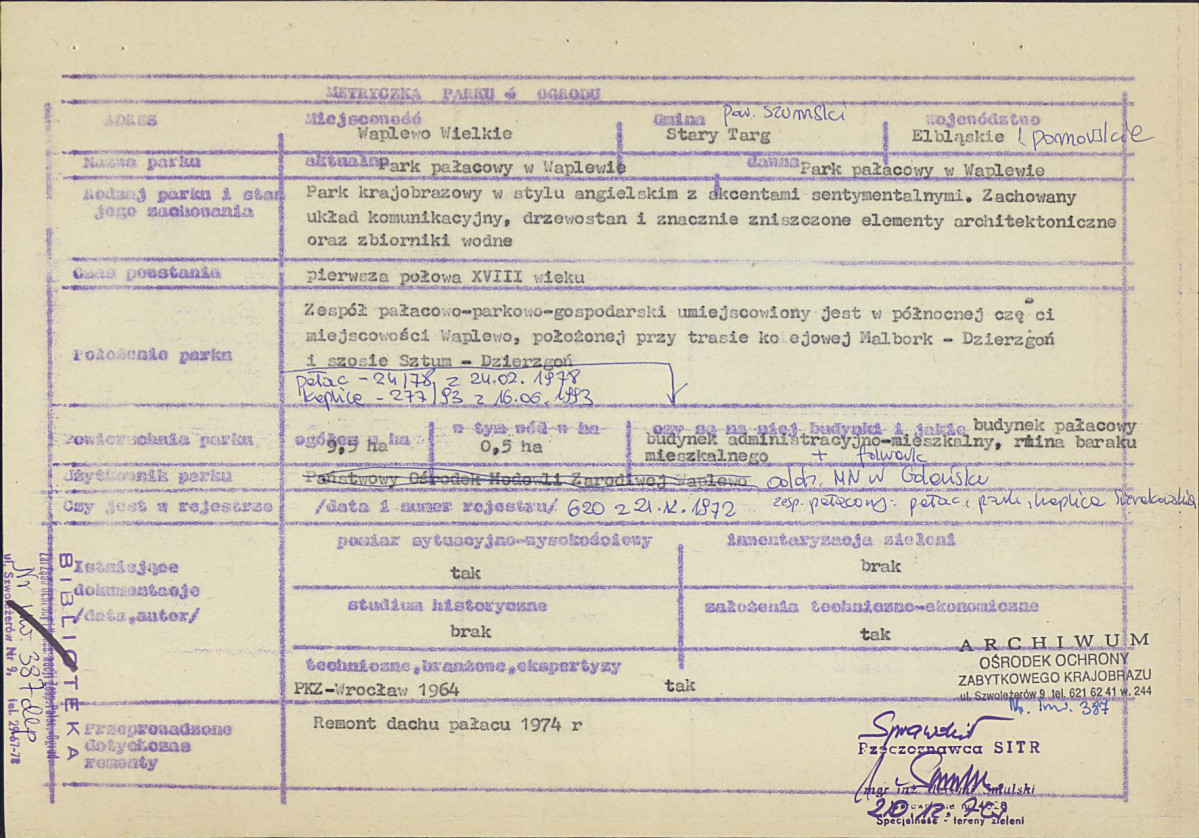 METRYCZKA PARKU i OGRODU
ADRES
Miejscowość
Waplewo Wielkie
Gmina pow. szumski
Stary Targ
województwo
Elbląskie / pomorskie
Nazwa parku
aktualna Park pałacowy w Waplewie
dawna Park pałacowy w Waplewie
Rodzaj parku i stan
jego zachowania
Park krajobrazowy w stylu angielskim z akcentami sentymentalnymi. Zachowany
układ komunikacyjny, drzewostan i znacznie zniszczone elementy architektoniczne
oraz zbiorniki wodne
Czas powstania
pierwsza połowa XVIII wieku
Położenie parku
Zespół pałacowo-parkowo-gospodarski umiejscowiony jest w północnej czę ci
miejscowości Waplewo, położonej przy trasie ko ejowej Malbork - Dzierzgoń
i szosie Sztum - Dzierzgoń
pałac - 24/78 z 24.02.1978
kaplica - 277/93 z 16.06.1993
Powierzchnia parku
ogółem w ha
9,5 ha
w tym wód w ha
0,5 ha
czy są na niej budynki i jakie budynek pałacowy
budynek administracyjno-mieszkalny, ruina baraku
mieszkalnego + folwark
Użytkownik parku
Państwowy Ośrodek Hodowli Zarodiwej Waplewo oddz. MN w Gdańsku
Czy jest w rejestrze
/data i numer rejestru/ 620 z 21.12.1972 zesp. pałacowy: pałac, park, kaplica
Istniejące
dokumentacje
/data, autor/
pomiar sytuacyjno-wysokościowy
tak
inwentaryzacja zieleni
brak
studium historyczne
brak
założenia techniczno-ekonomiczne
tak
techniczne, branżowe, ekspertyzy
PKZ-Wrocław 1964
tak
Przeprowadzone
dotychczas
remonty
Remont dachu pałacu 1974 r
ARCHIWUM
OŚRODEK OCHRONY
ZABYTKOWEGO KRAJOBRAZU
ul. Szwoleżerów 9 tel. 621 62 41 w. 244
Nr. inw. 387
Sprawdził
Rzeczoznawca SITR
mgr inż.
20.12.78
Specjalność - tereny zieleni
BIBLIOTEKA
ul. Szwoleżerów Nr 9, tel. 29-67-78
Nr inw. 387 dep